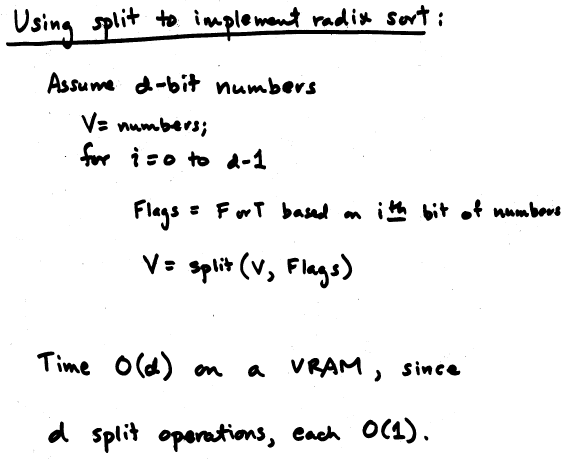 Using split to implement radix sort:
Assume d-bit numbers
V= numbers;
for i=0 to d-1
Flags = F or T based on ith bit of numbers
V= split(V, Flags)
Time O(d) on a VRAM, since
d split operations, each O(1).